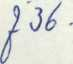 f 36.